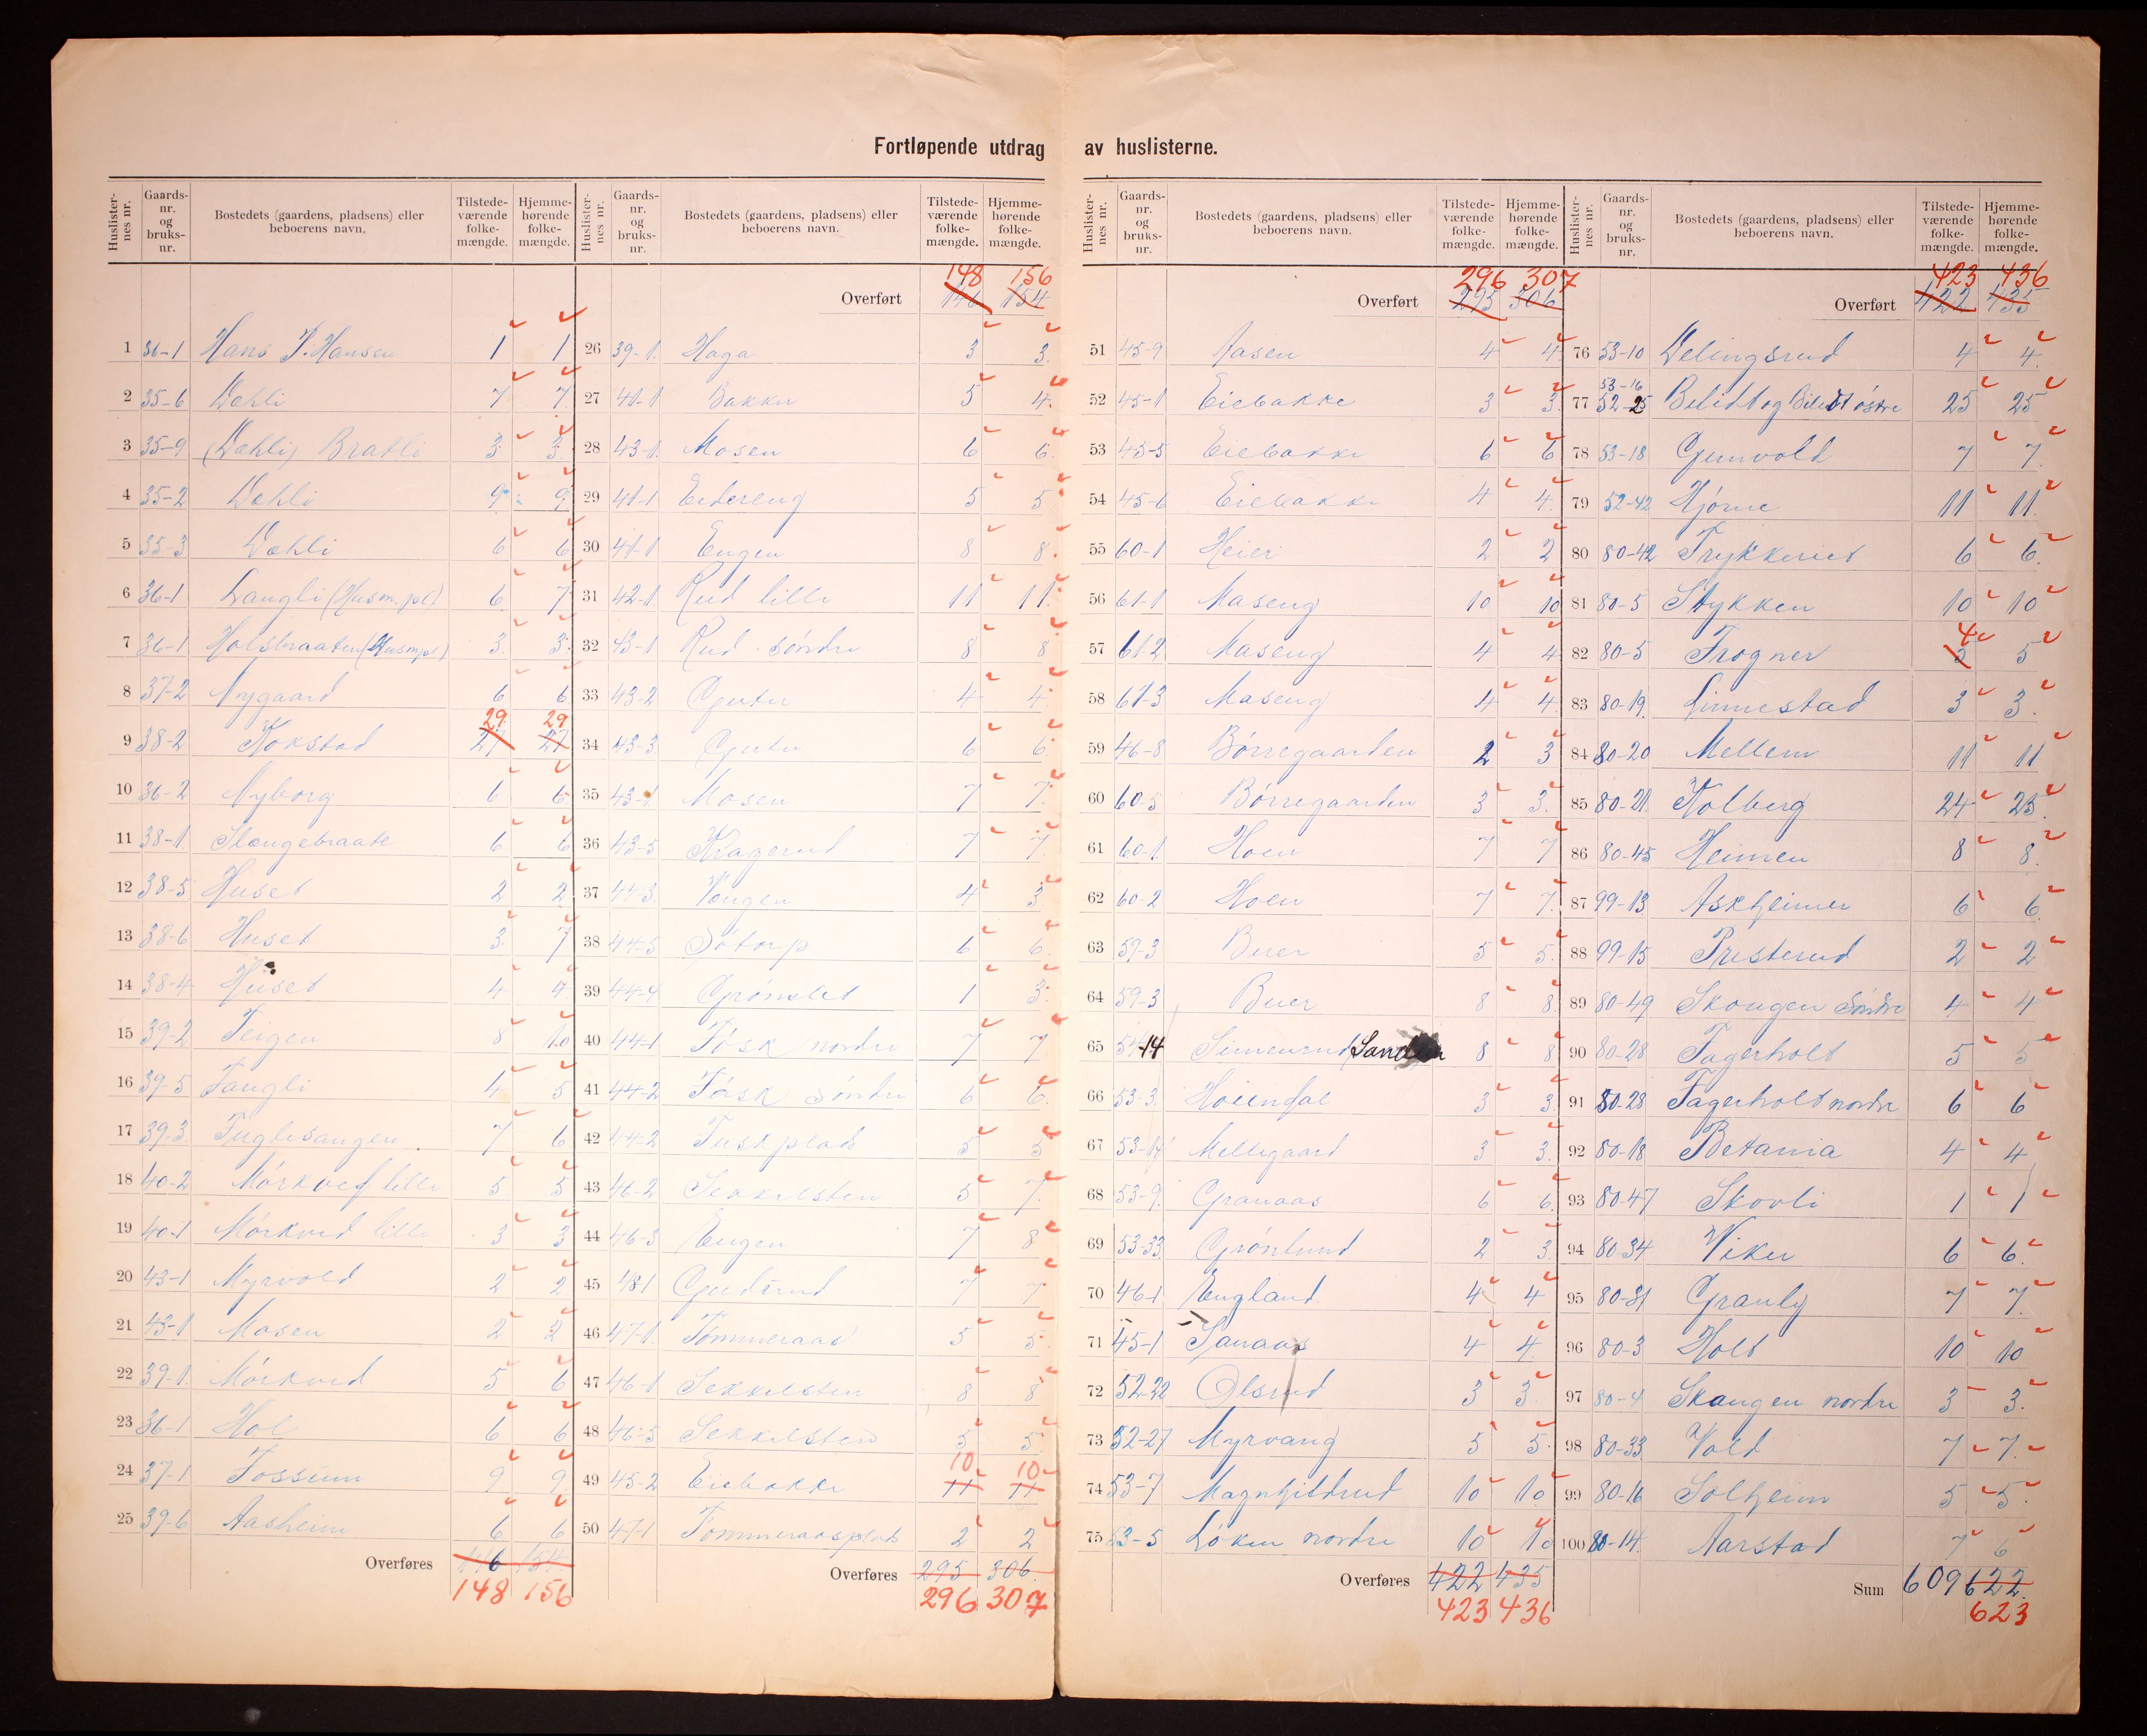 Fortløpende utdrag av huslisterne.
Huslister-nes nr. | Gaards-nr. og bruks-nr. | Bostedets (gaardens, pladsens) eller beboerens navn. | Tilstede-værende folke-mængde. | Hjemme-hørende folke-mængde.
1 36-1 Hans J. Hansen 1 1
2 35-6 Dahli 7 7
3 35-9 (Dahli) Bratli 3 3
4 35-2 Dahli 9 9
5 35-3 Dahli 6 6
6 36-1 Langli (Husm.pl) 6 7
7 36-1 Holsbraaten (Husmpl) 3 3
8 37-2 Nygaard 6 6
29 29
9 38-2 Kokstad 27 27
10 36-2 Nyborg 6 6
11 38-1 Slængebraate 6 6
12 38-5 Huset 2 2
13 38-6 Huset 3 7
14 38-4 Huset 4 4
15 39-2 Teigen 8 10
16 39-5 Taugli 4 5
17 39-3 Fuglesangen 7 6
18 40-2 Mörkved lille 5 5
19 40-1 Mörkved lille 3 3
20 43-1 Myrvold 2 2
21 43-1 Mosen 2 2
22 39-1 Mörkved 5 6
23 36-1 Hol 6 6
24 37-1 Fossum 9 9
25 39-6 Aasheim 6 6
Overføres 146 154
148 156
Huslister-nes nr. | Gaards-nr. og bruks-nr. | Bostedets (gaardens, pladsens) eller beboerens navn. | Tilstede-værende folke-mængde. | Hjemme-hørende folke-mængde.
148 156
Overført 146 154
26 39-1 Haga 3 3
27 41-1 Bakke 5 4
28 43-1 Mosen 6 6
29 41-1 Edereng 5 5
30 41-1 Engen 8 8
31 42-1 Rud lille 11 11
32 43-1 Rud söndre 8 8
33 43-2 Gutu 4 4
34 43-3 Gutu 6 6
35 43-1 Mosen 7 7
36 43-5 Kragerud 7 7
37 44-3 Vangen 4 3
38 44-5 Sötorp 6 6
39 44-4 Grönslet 1 3
40 44-1 Fösk nordre 7 7
41 44-2 Fösk söndre 6 6
42 44-2 Fuskplads 5 5
43 46-2 Sekkelsten 5 7
44 46-3 Engen 7 8
45 48-1 Gudsrud 7 7
46 47-1 Tömmeraas 5 5
47 46-1 Sekkelsten 8 8
48 46-5 Sekkelsten 5 5
10 10
49 45-2 Eiebakke 11 11
50 47-1 Tömmeraasplads 2 2
Overføres 295 306
296 307
Huslister-nes nr. | Gaards-nr. og bruks-nr. | Bostedets (gaardens, pladsens) eller beboerens navn. | Tilstede-værende folke-mængde. | Hjemme-hørende folke-mængde.
296 307
Overført 295 306
51 45-9 Aasen 4 4
52 45-1 Eiebakke 3 3
53 45-5 Eiebakke 6 6
54 45-6 Eiebakke 4 4
55 60-1 Heier 2 2
56 61-1 Maseng 10 10
57 61-2 Maseng 4 4
58 61-3 Maseng 4 4
59 46-8 Börregaarden 2 3
60 60-5 Börregaarden 3 3
61 60-1 Hoen 7 7
62 60-2 Hoen 7 7
63 59-3 Buer 5 5
64 59-3 Buer 8 8
65 54-14 Simensrud 8 8
66 53-3 Höiendal 3 3
67 53-14 Mellegaard 3 3
68 53-9 Granaas 6 6
69 53-33 Grönlund 2 3
70 46-1 England 4 4
71 45-1 Sanaas 4 4
72 52-22 Olsrud 3 3
73 52-27 Myrvang 5 5
74 53-7 Magnhildrud 10 10
75 53-5 Löken nordre 10 10
Overføres 422 435
423 436
Huslister-nes nr. | Gaards-nr. og bruks-nr. | Bostedets (gaardens, pladsens) eller beboerens navn. | Tilstede-værende folke-mængde. | Hjemme-hørende folke-mængde.
423 436
Overført 422 435
76 53-10 Delingsrud 4 4
53-16
77 52-25 og östre 25 25
78 53-18 Gunvold 7 7
79 52-42 Hjörne 11 11
80 80-42 Trykkeriet 6 6
81 80-5 Stykken 10 10
4
82 80-5 Frogner 5 5
83 80-19 Linnestad 3 3
84 80-20 Mellem 11 11
85 80-21 Kolberg 24 25
86 80-45 Heimen 8 8
87 99-13 Askheimer 6 6
88 99-15 Presterud 2 2
89 80-49 Skougen Söndre 4 4
90 80-28 Fagerholt 5 5
91 80-28 Fagerholt nordre 6 6
92 80-18 Betania 4 4
93 80-47 Skovli 1 1
94 80-34 Viker 6 6
95 80-31 Granly 7 7
96 80-3 Holt 10 10
97 80-4 Skaugen nordre 3 3
98 80-33 Vold 7 7
99 80-16 Solheim 5 5
100 80-14 Aarstad 7 6
Sum 609 622
623